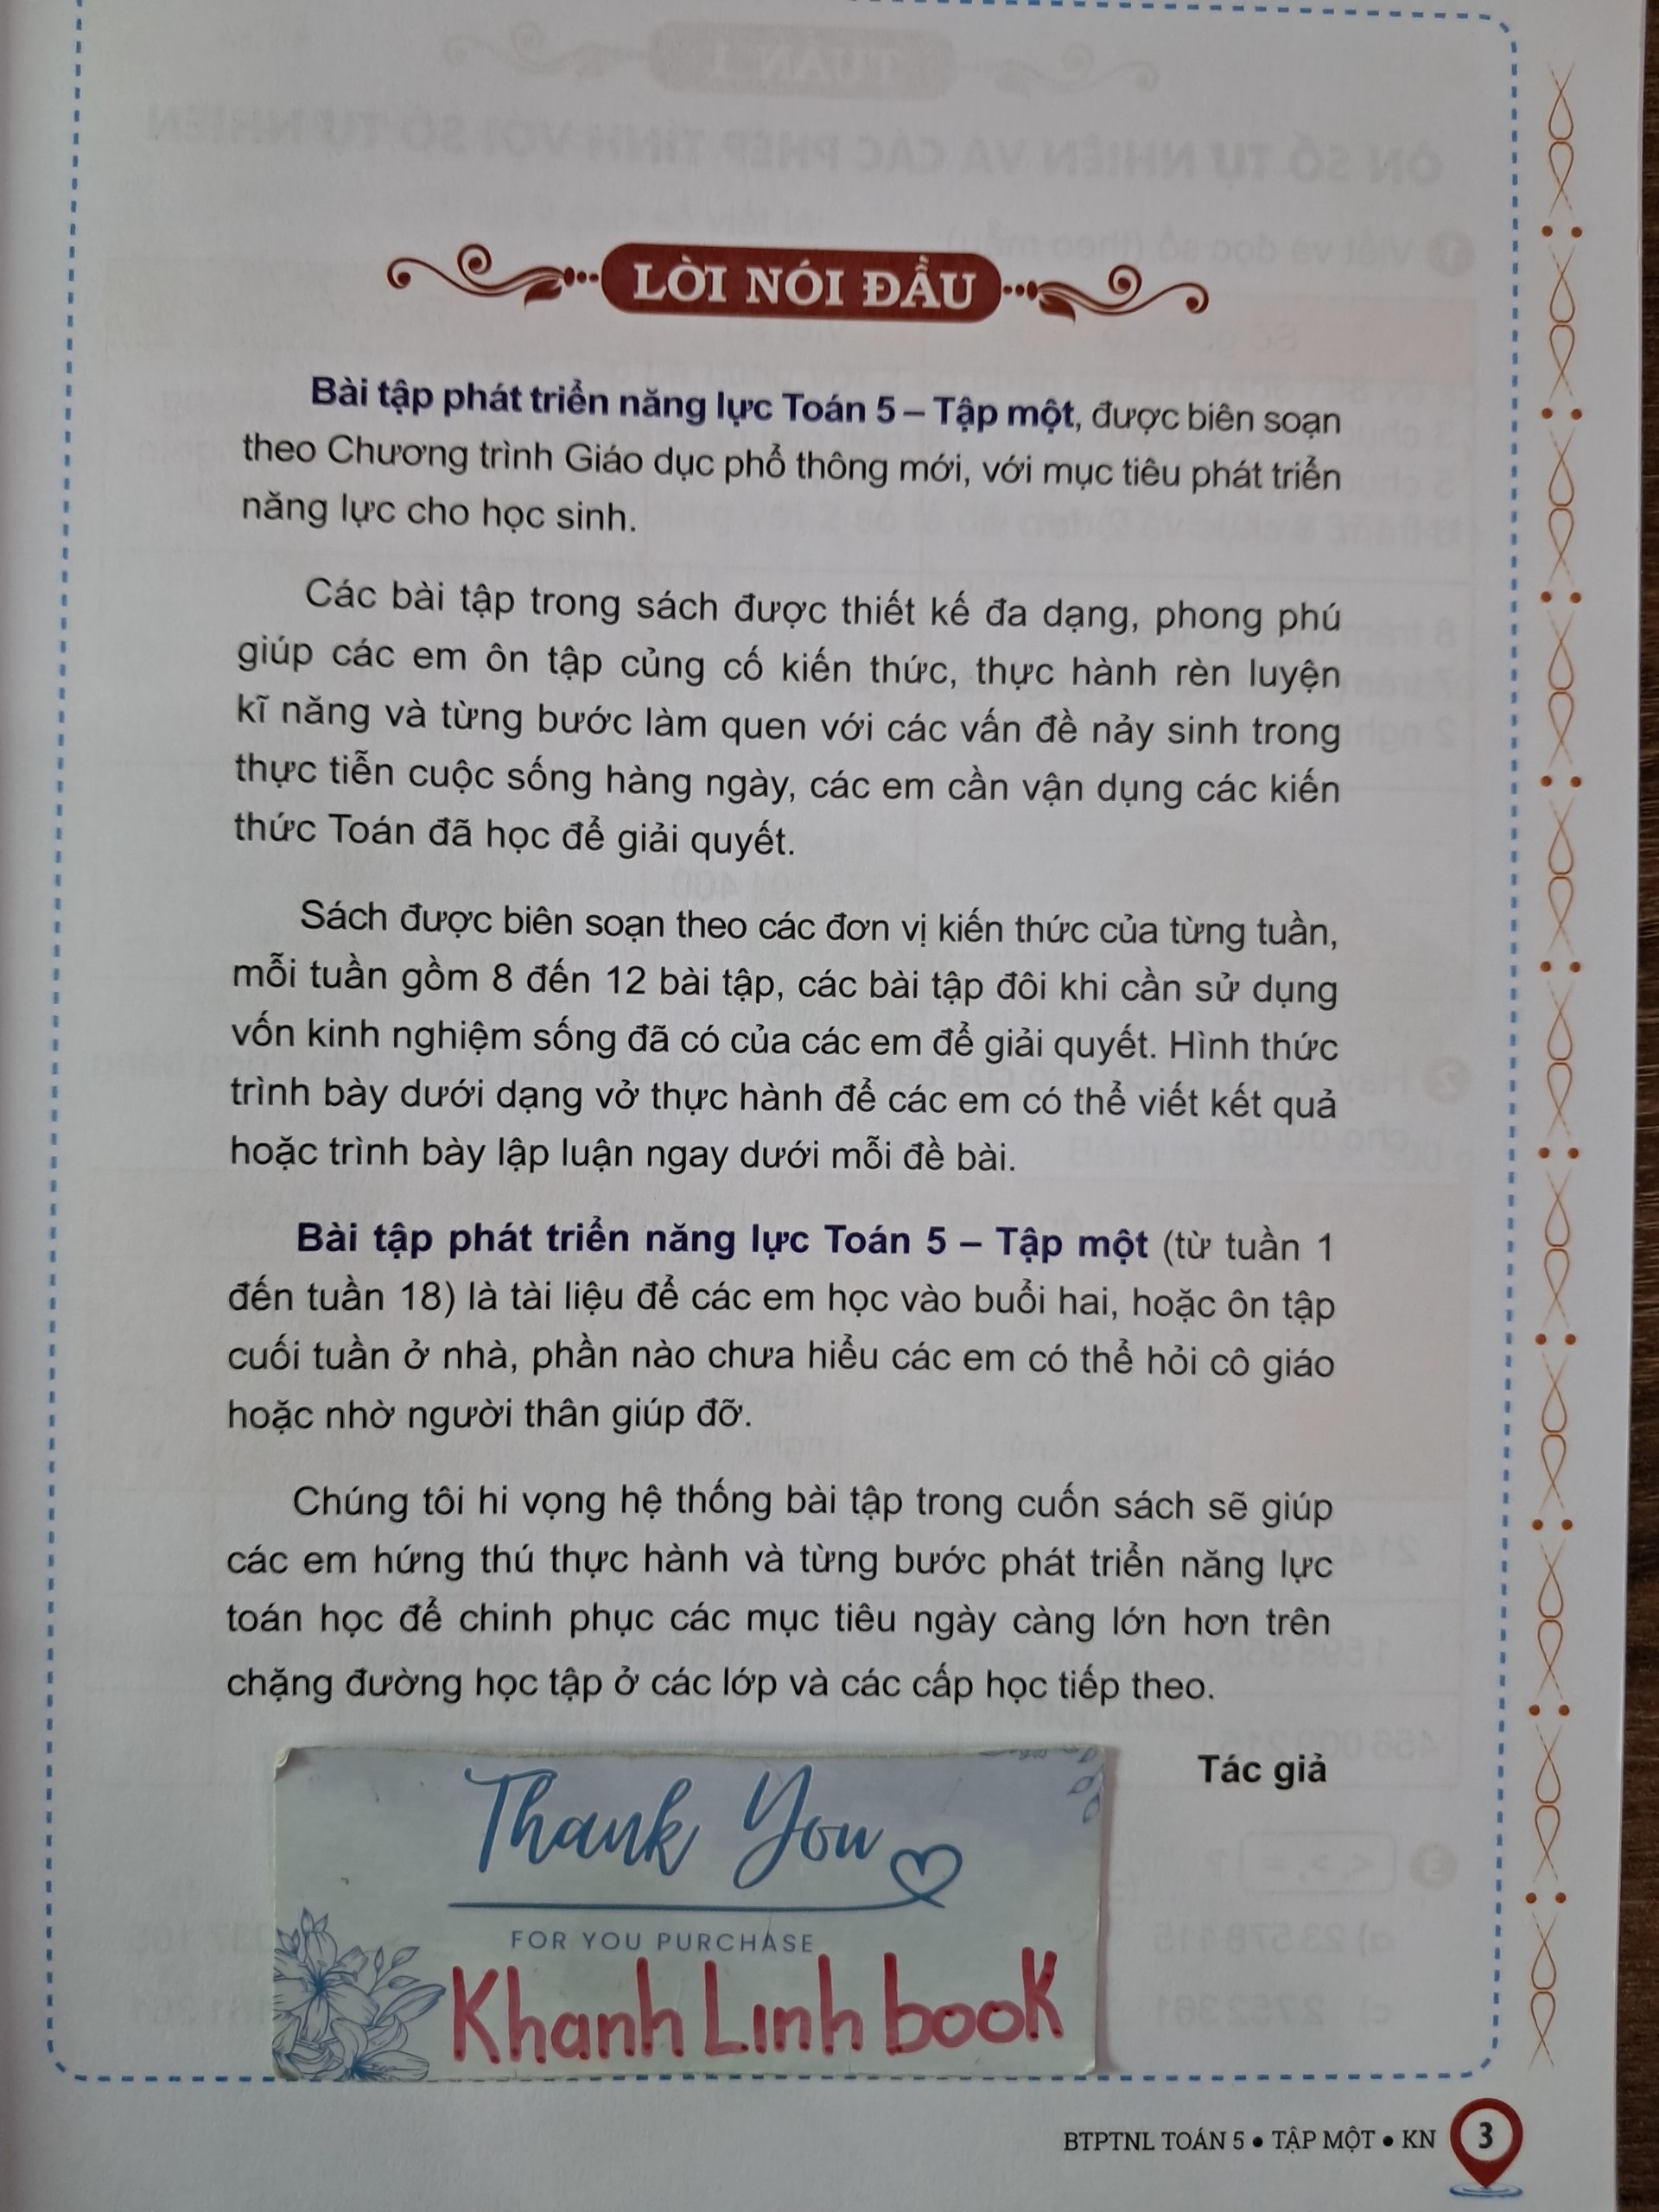 LỜI NÓI ĐẦU
Bài tập phát triển năng lực Toán 5 – Tập một, được biên soạn
theo Chương trình Giáo dục phổ thông mới, với mục tiêu phát triển
năng lực cho học sinh.
Các bài tập trong sách được thiết kế đa dạng, phong phú
giúp các em ôn tập củng cố kiến thức, thực hành rèn luyện
kĩ năng và từng bước làm quen với các vấn đề nảy sinh trong
thực tiễn cuộc sống hàng ngày, các em cần vận dụng các kiến
thức Toán đã học để giải quyết.
Sách được biên soạn theo các đơn vị kiến thức của từng tuần,
mỗi tuần gồm 8 đến 12 bài tập, các bài tập đôi khi cần sử dụng
vốn kinh nghiệm sống đã có của các em để giải quyết. Hình thức
trình bày dưới dạng vở thực hành để các em có thể viết kết quả
hoặc trình bày lập luận ngay dưới mỗi đề bài.
Bài tập phát triển năng lực Toán 5 – Tập một (từ tuần 1
đến tuần 18) là tài liệu để các em học vào buổi hai, hoặc ôn tập
cuối tuần ở nhà, phần nào chưa hiểu các em có thể hỏi cô giáo
hoặc nhờ người thân giúp đỡ.
Chúng tôi hi vọng hệ thống bài tập trong cuốn sách sẽ giúp
các em hứng thú thực hành và từng bước phát triển năng lực
toán học để chinh phục các mục tiêu ngày càng lớn hơn trên
chặng đường học tập ở các lớp và các cấp học tiếp theo.
Tác giả
Thank You
FOR YOU PURCHASE
Khanh Linh book
BTPTNL TOÁN 5 • TẬP MỘT • KN 3